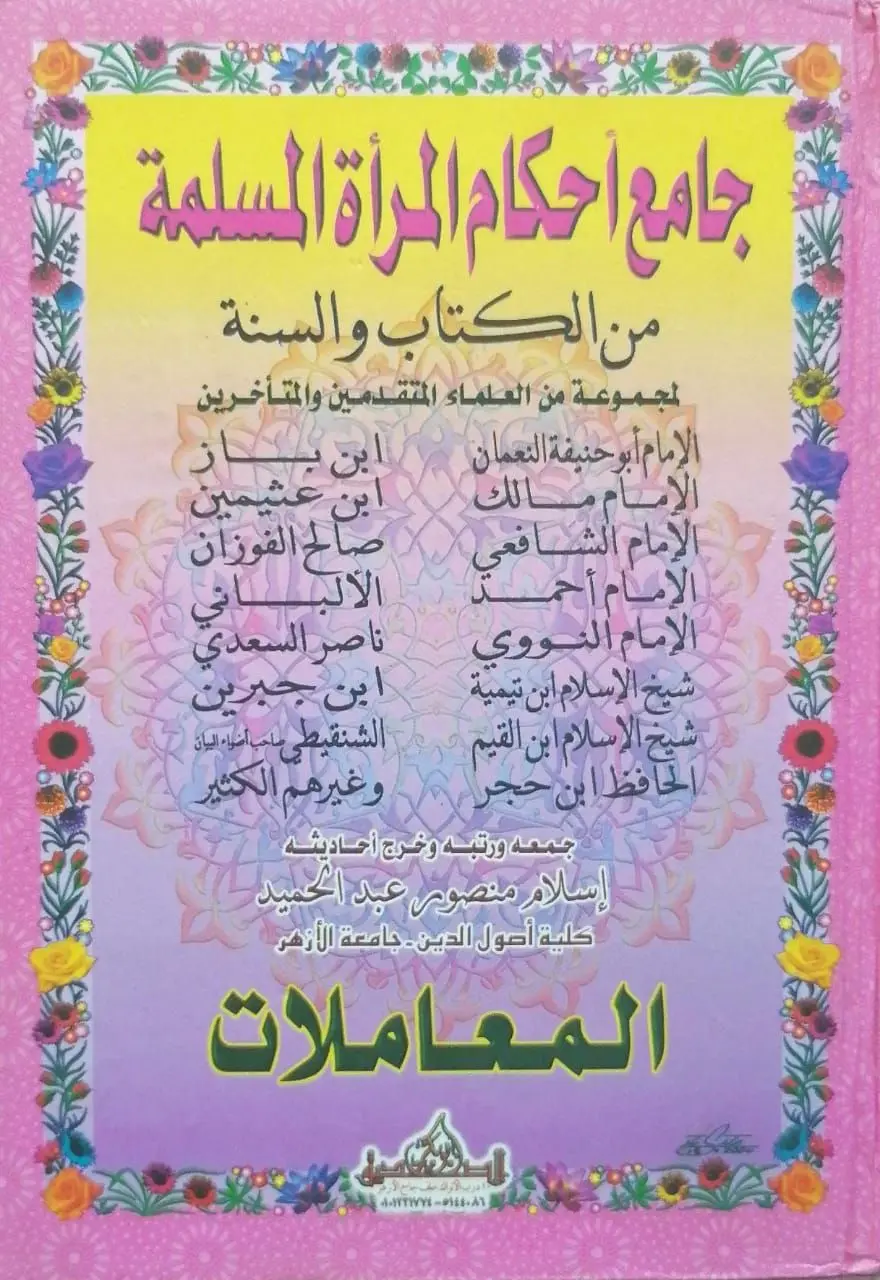 جامع أحكام المرأة المسلمة
من الكتاب والسنة
لمجموعة من العلماء المتقدمين والمتأخرين
الإمام أبو حنيفة النعمان
الإمام مالك
الإمام الشافعي
الإمام أحمد
الإمام النووي
شيخ الإسلام ابن تيمية
شيخ الإسلام ابن القيم
الحافظ ابن حجر
ابن باز
ابن عثيمين
صالح الفوزان
الألباني
ناصر السعدي
ابن جبرين
الشنقيطي صاحب أضواء البيان
وغيرهم الكثير
جمعه ورتبه وخرج أحاديثه
إسلام منصور عبد الحميد
كلية أصول الدين - جامعة الأزهر
المعاملات